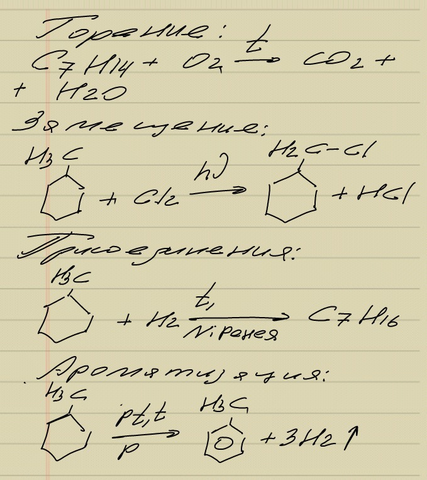 Горение:
C7H14 + O2 →t CO2 +
+ H2O
Замещение:
H3C + Cl2 →hν H2C-Cl + HCl
Присоединения:
H3C + H2 →t, Ni Ренея C7H16
Ароматизация:
H3C →pt,t p H3C + 3H2↑